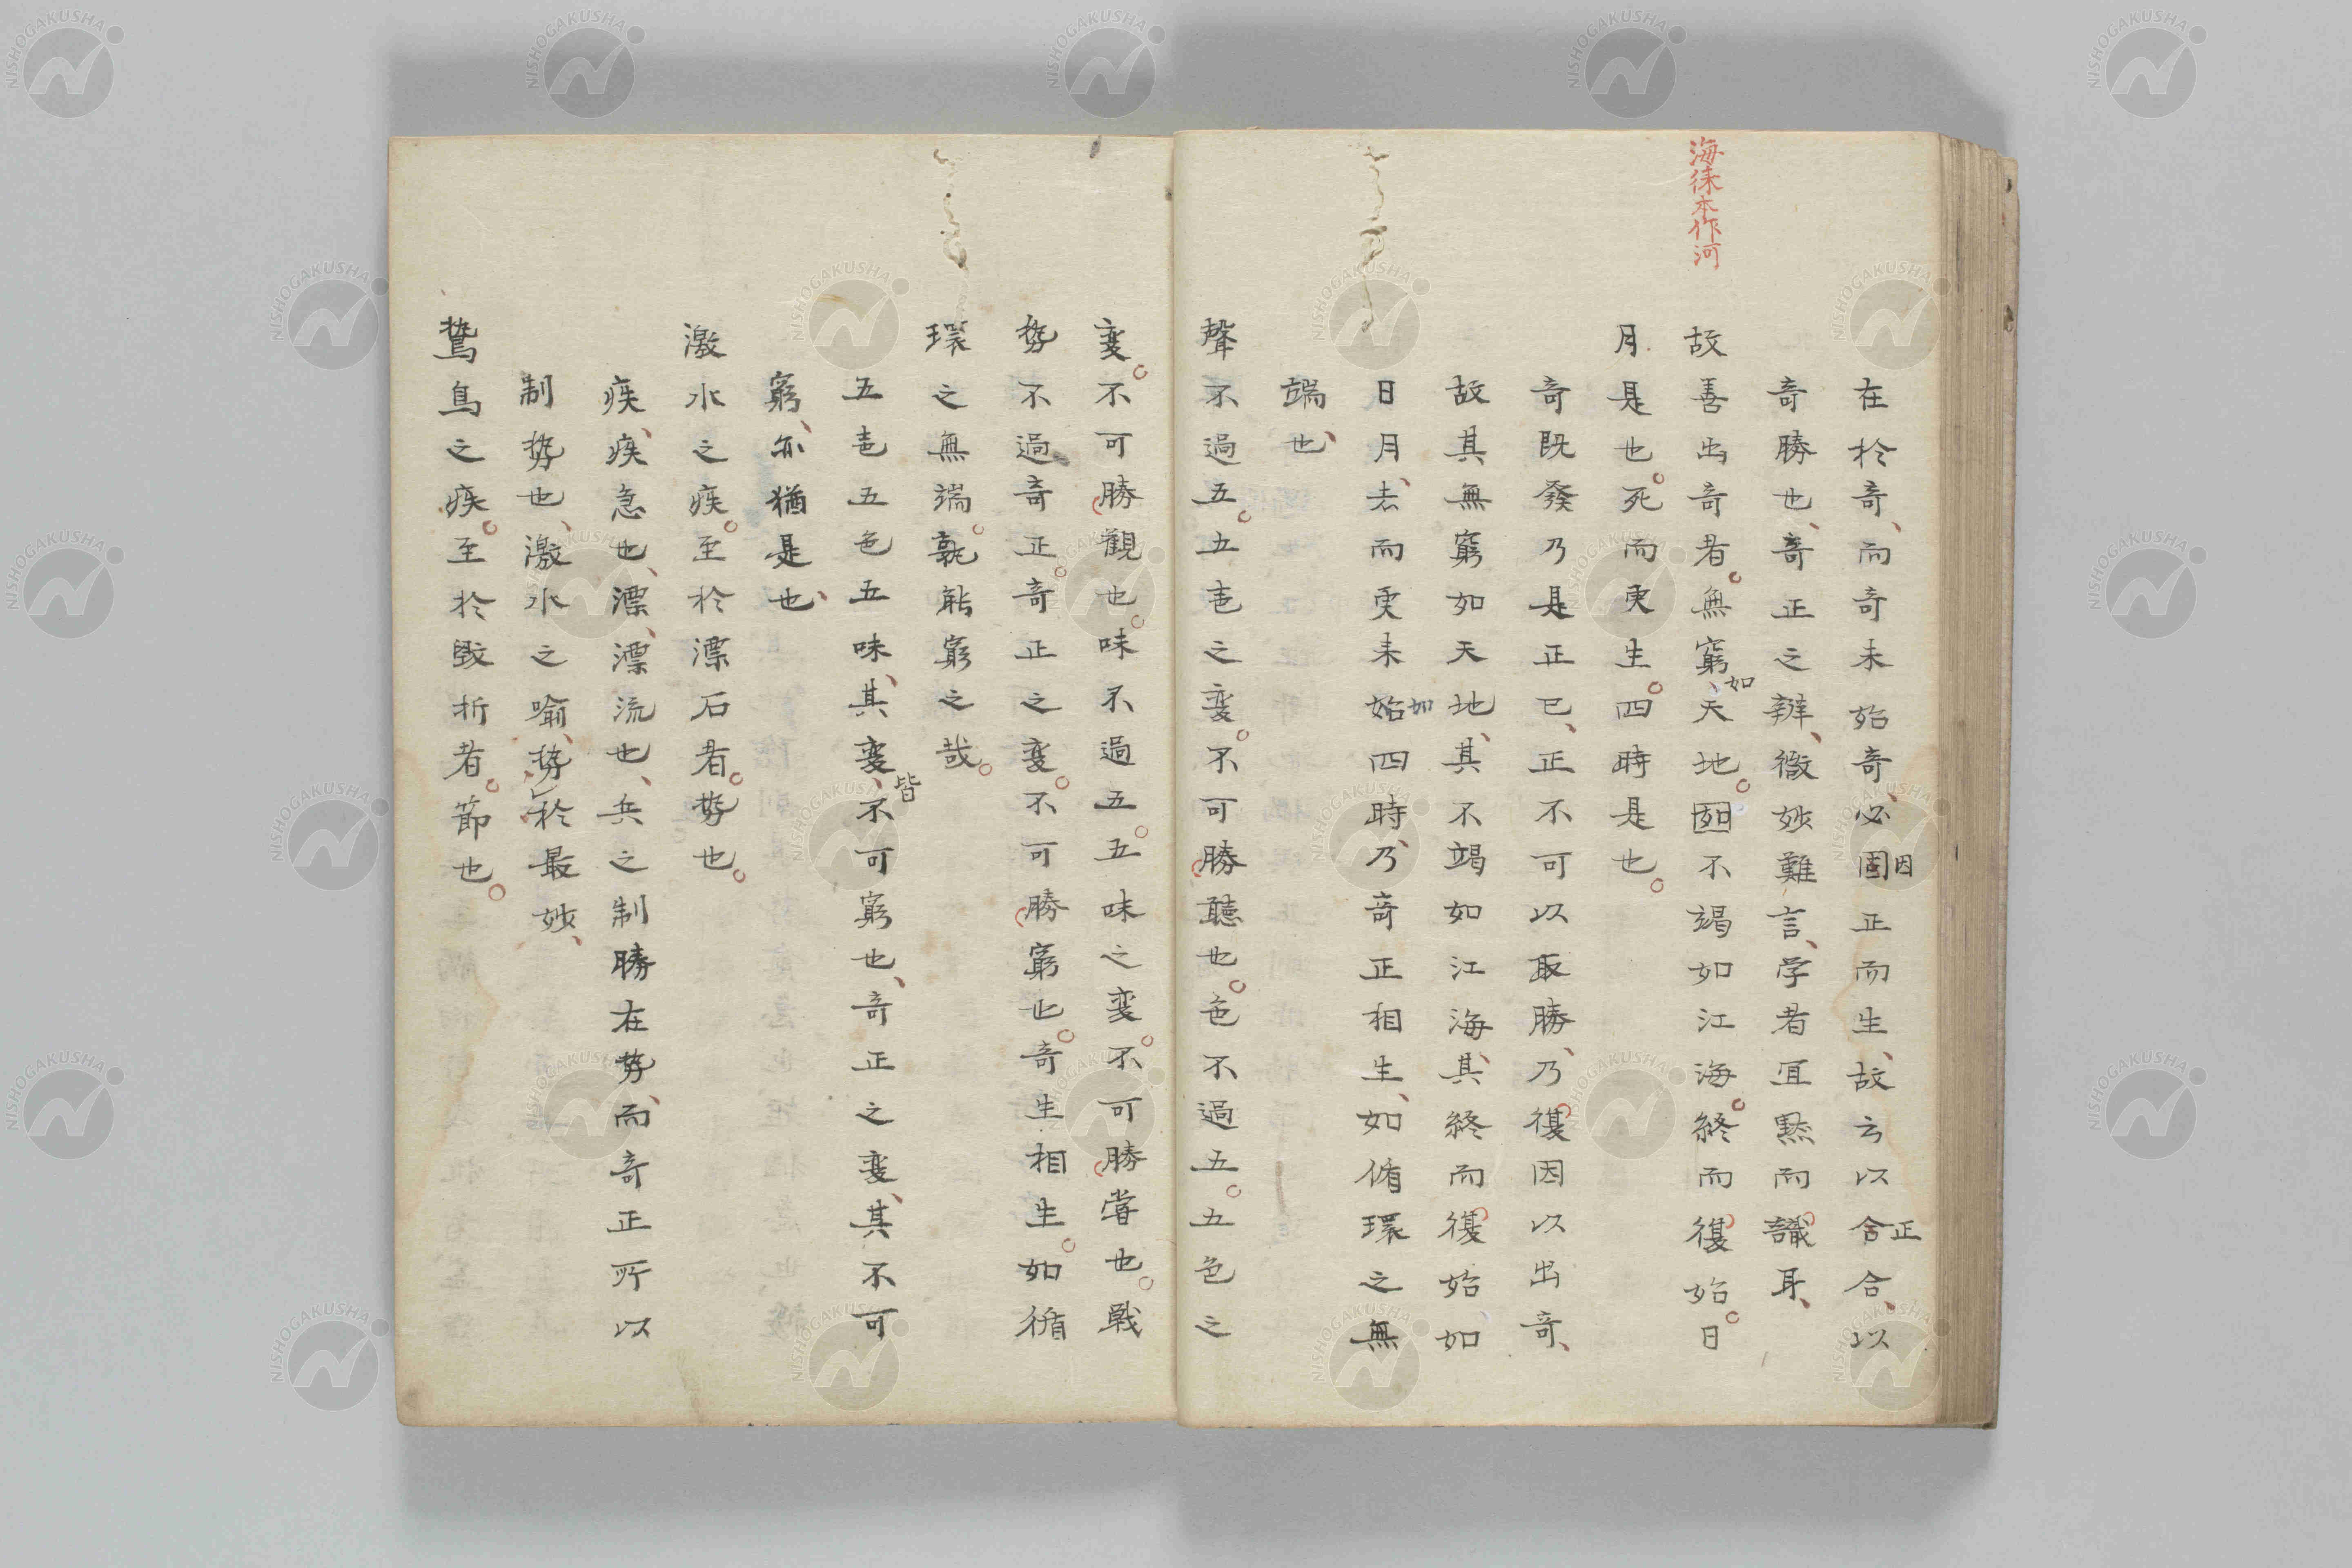 海徠本作河
在於奇、而奇未始奇、必固因正而生、故云以舍正合、以
奇勝也、奇正之辨、微妙難言、学者宜黙而識耳、
故善出奇者。無窮、如天地。不竭如江海。終而復始。日
月是也。死而更生。四時是也。
奇既發乃是正已、正不可以取勝、乃復因以出奇、
故其無窮如天地、其不竭如江海、其終而復始、如
日月、去而更来始如四時、乃奇正相生、如循環之無
端也、
聲不過五。五声之変。不可勝聽也。色不過五。五色之
変。不可勝觀也。味不過五。五味之変。不可勝嘗也。戰
势不過奇正。奇正之変。不可勝窮也。奇生相生。如循
環之無端。孰能窮之哉。
五声五色五味、其変、皆不可窮也、奇正之変、其不可
窮、亦猶是也、
激水之疾。至於漂石者。势也。
疾、疾急也、漂、漂流也、兵之制勝在势、而奇正所以
制势也、激水之喻、势於最妙、
鷙鳥之疾。至於毀折者。節也。
NISHOGAKUSHA